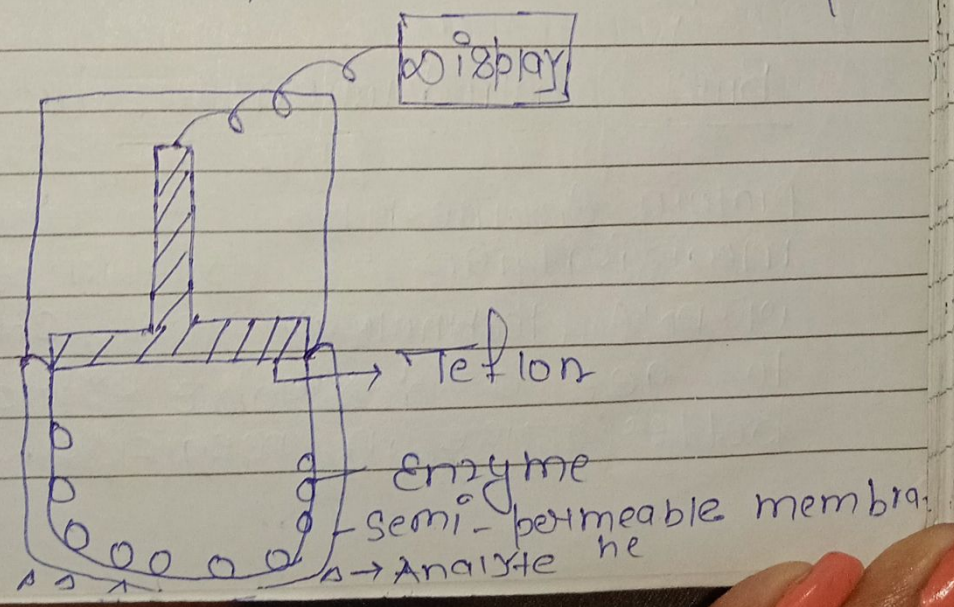 Display
Teflon
Enzyme
Semi-permeable membra
ne
→ Analyte